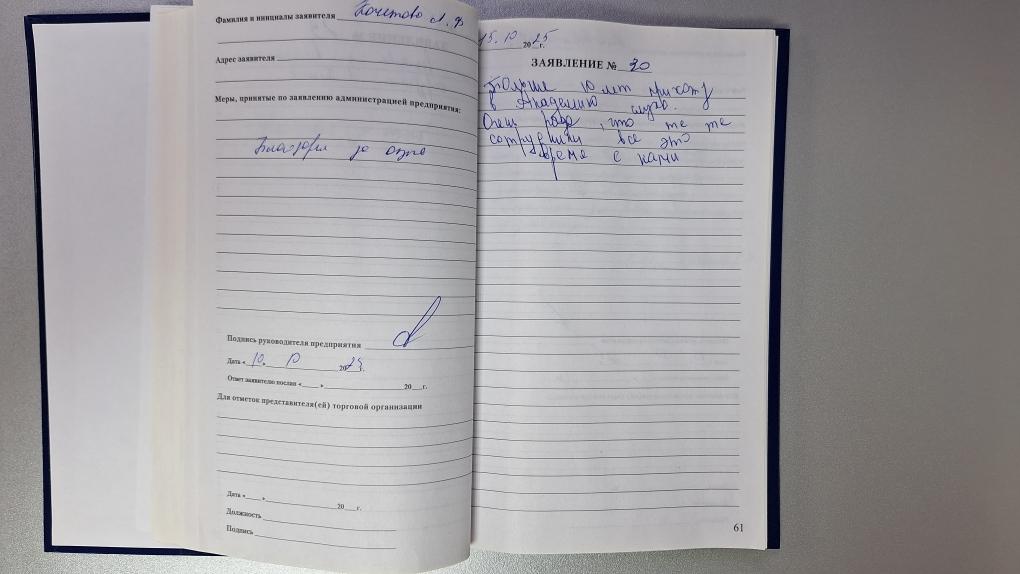 Фамилия и инициалы заявителя Кочетова Л.Ф
Адрес заявителя
Меры, принятые по заявлению администрацией предприятия:
Благодарим за отзыв
Подпись руководителя предприятия
Дата « 10 » 10 20 г.
Ответ заявителю послан « » 20 г.
Для отметок представителя(ей) торговой организации
Дата « » 20 г.
Должность
Подпись
15.10 2025 г.
ЗАЯВЛЕНИЕ № 30
Больше 10 лет прихожу
в Академию слуха.
Очень рада, что те же
сотрудники все это
время с нами
61